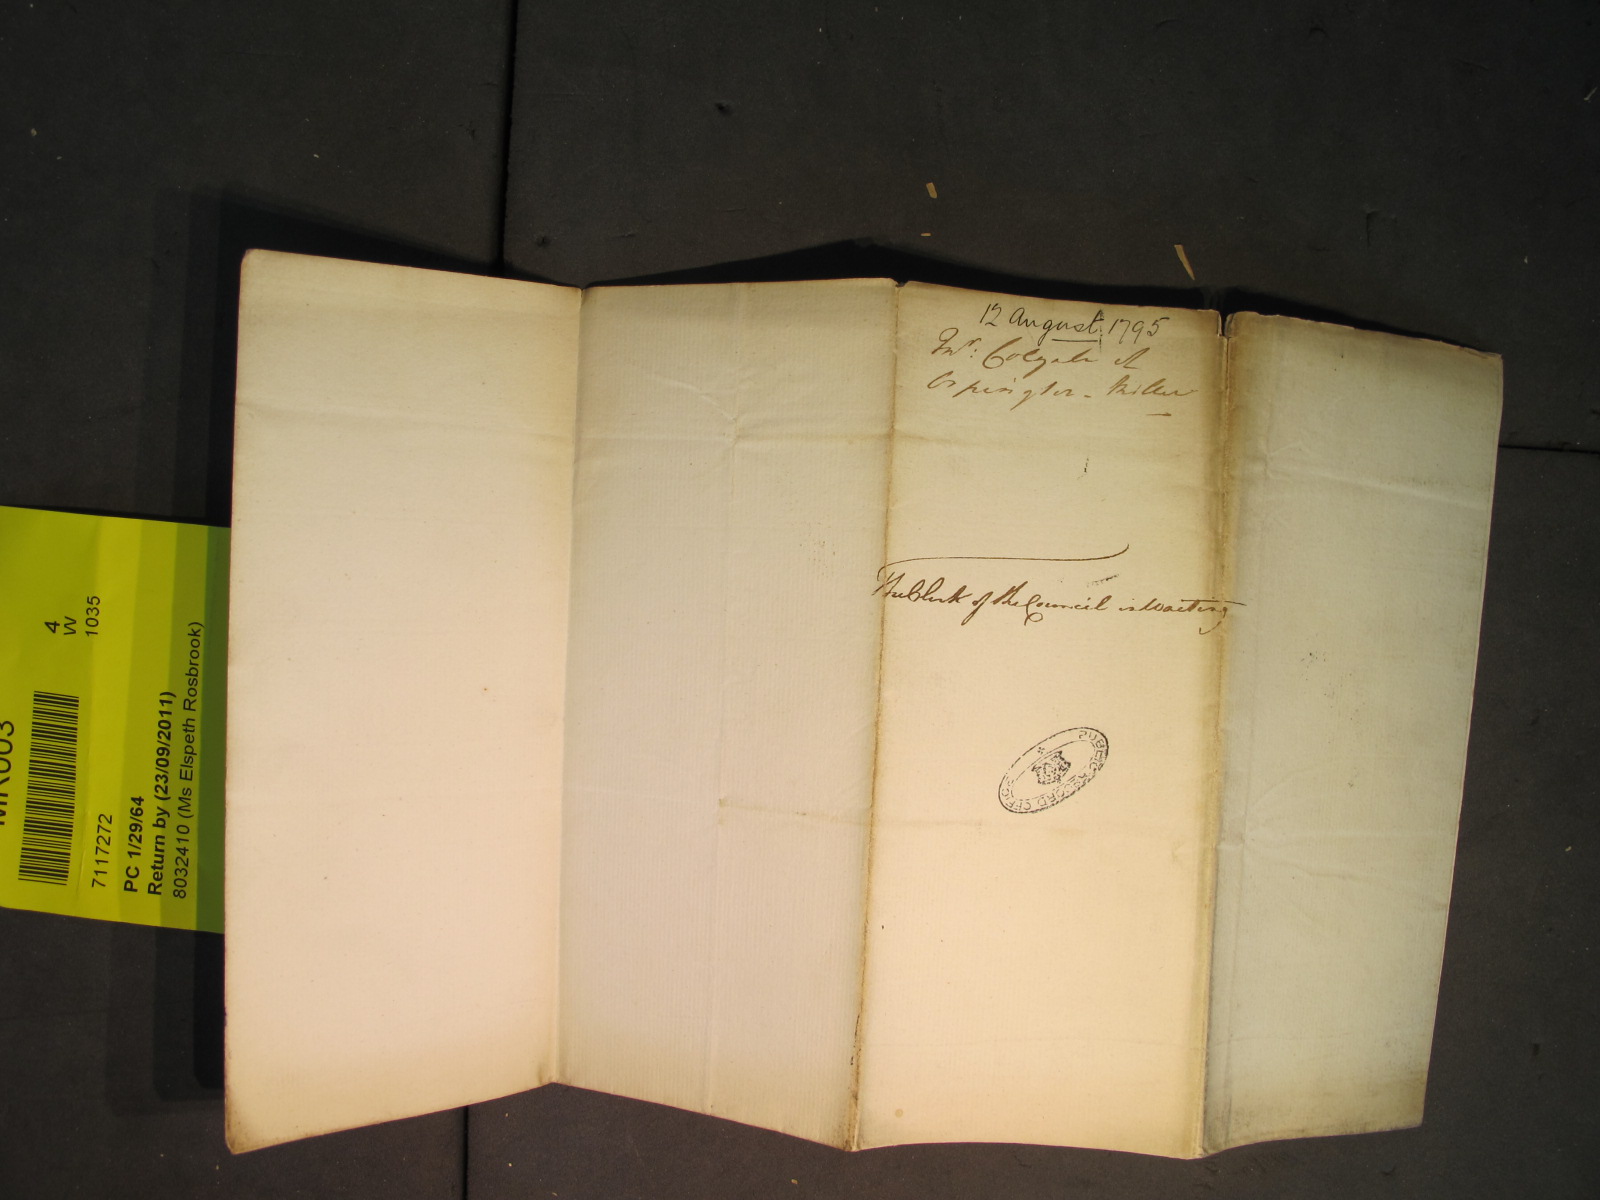 12 August 1795
Mr: Colgate of
Orpington - Miller
The Clerk of the Council is Waiting
PUBLIC RECORD OFFICE
MR003
4
W
1035
7117272
PC 1/29/64
Return by (23/09/2011)
8032410 (Ms Elspeth Rosbrook)